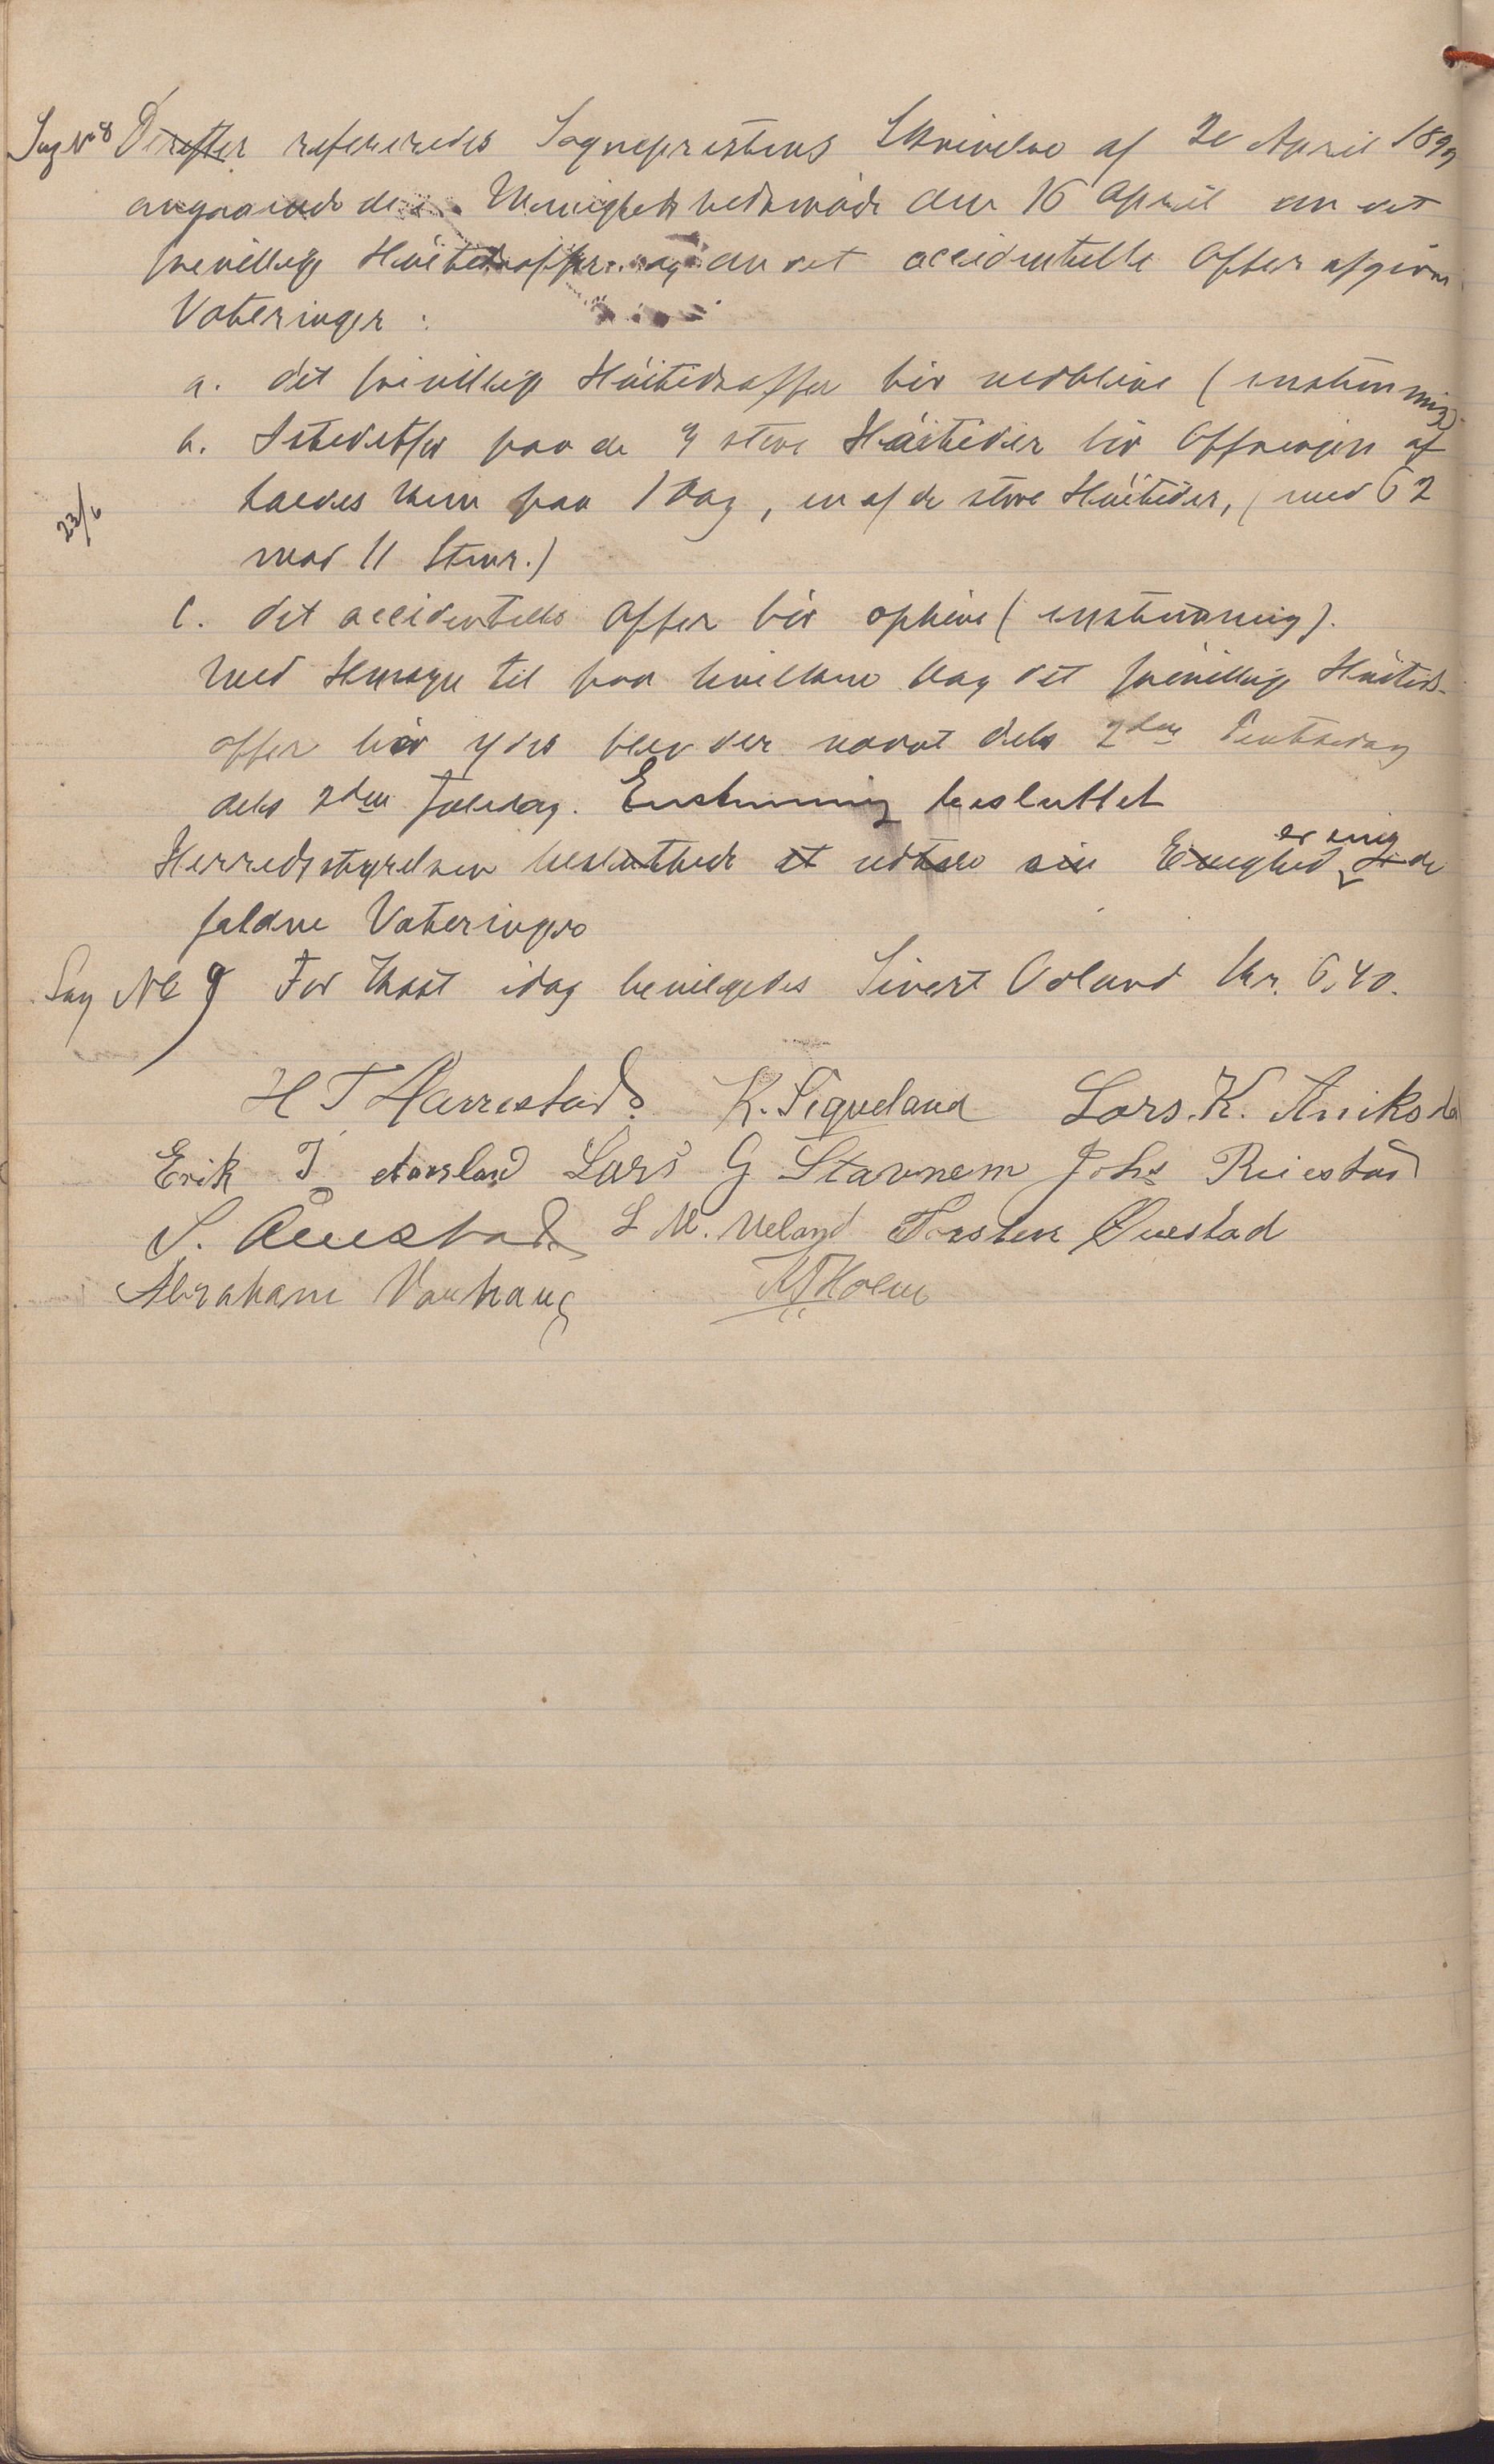 Sag N. 8 Derefter refereredes Sogneprestens Skrivelse af 20 April 1899
angaaende de i Menighedsmøde den 16 April om det
frivillige Høitidsoffer og om det accidentelle Offer afgivne
Voteringer:
a. det frivillige Høitidsoffer bør vedblive (enstemmig)
b. Istedetfor paa de 3 store Høitider bør Ofringen af
holdes kun paa 1 Dag, en af de store Høitider, (med 62
mod 11 Stmr.)
c. det accidentelle Offer bør ophøre (enstemmig).
23/6
Med Hensyn til paa hvilken Dag det frivillige Høitids-
offer bør ydes blev der nævnt dels 2den Pintsedag
dels 2den Juledag. Enstemmig besluttet
Herredsstyrelsen besluttede at udtale sin Enighed er enig i de
faldne Voteringer
Sag No 9 For Skyds idag bevilgedes Sivert Odland Kr. 6,40.
H T Harrestad. K. Sigveland Lars. K. Aniksda
Erik T. Aarsland Lars G Stavnem Johs Riiestad
S. Øuestad L M. Ueland Torsten Øuestad
Abraham Varhaug M Holm